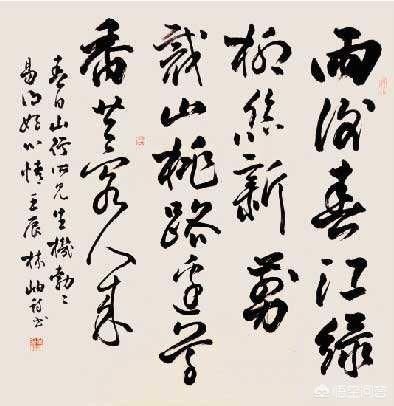 雨後春江綠
柳絲新剪
裁山桃路邊
香客人來
春日山行所見生機勃〻
易得好心情 壬辰 林岫詩書
悟空问答